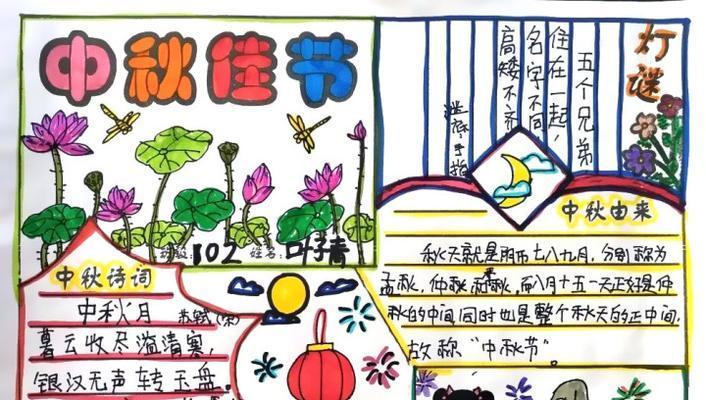 中秋佳节
班级:102 姓名:叶子青
灯谜
五个兄弟
住在一起,
名字不同,
高矮不齐
谜底手指
中秋由来
秋天就是阴历七八九月,分别称为
孟秋,仲秋 季秋,而八月十五一天正好是仲
秋的中间,同时也是整个秋天的正中间,
故称“中秋节”。
中秋诗词
中秋月 苏轼(宋)
暮云收尽溢清寒,
银汉无声转玉盘。